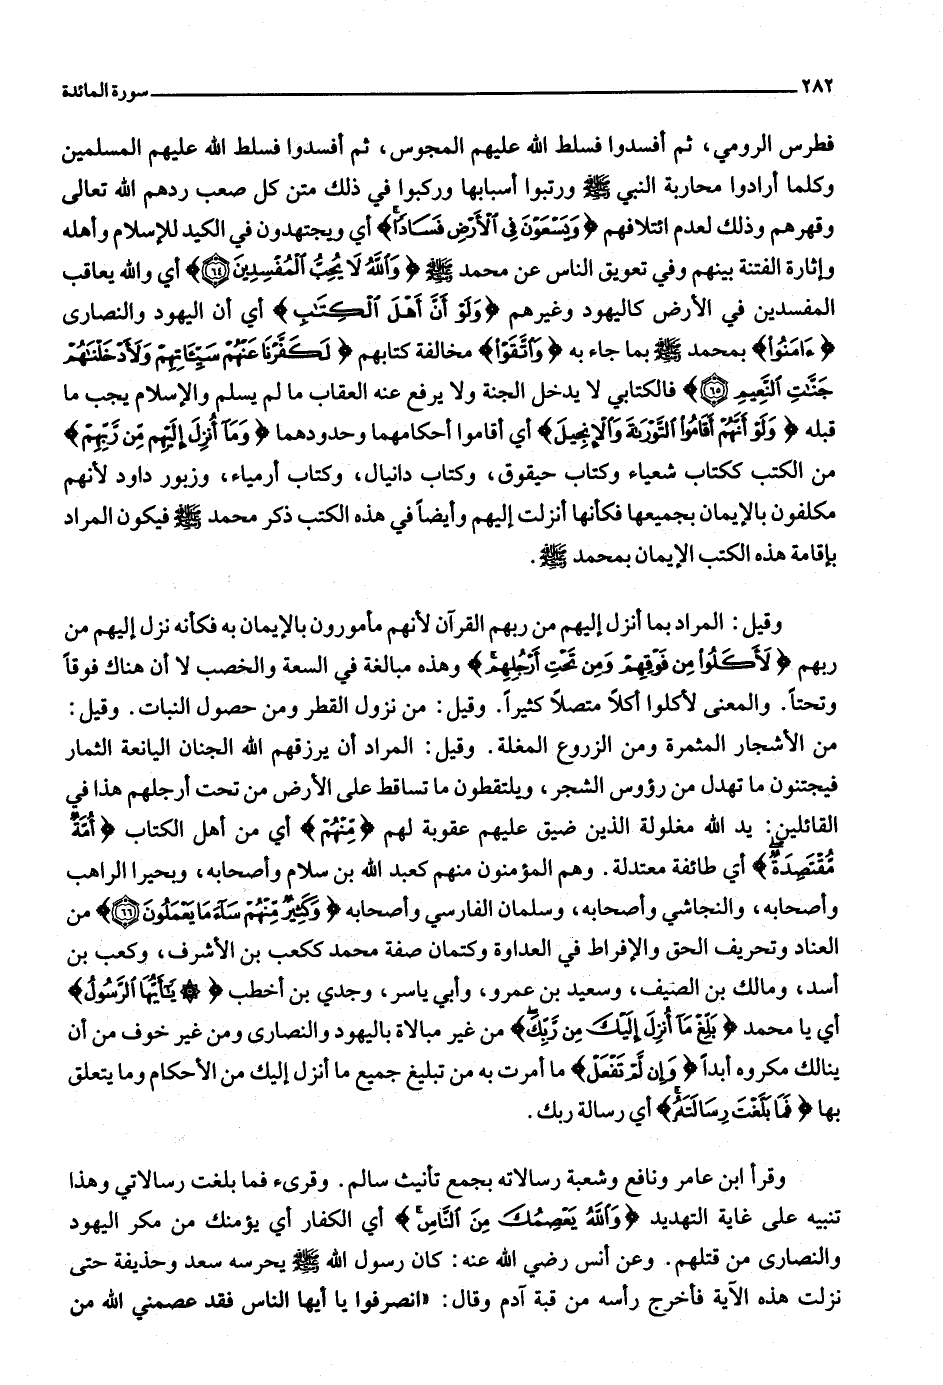 ٢٨٢ سورة المائدة
فطرس الرومي، ثم أفسدوا فسلط الله عليهم المجوس، ثم أفسدوا فسلط الله عليهم المسلمين
وكلما أرادوا محاربة النبي ﷺ ورتبوا أسبابها وركبوا في ذلك متن كل صعب ردهم الله تعالى
وقهرهم وذلك لعدم ائتلافهم ﴿وَيَسْعَوْنَ فِي ٱلْأَرْضِ فَسَادًاۚ﴾ أي ويجتهدون في الكيد للإسلام وأهله
وإثارة الفتنة بينهم وفي تعويق الناس عن محمد ﷺ ﴿وَٱللَّهُ لَا يُحِبُّ ٱلْمُفْسِدِينَ ٦٤﴾ أي والله يعاقب
المفسدين في الأرض كاليهود وغيرهم ﴿وَلَوْ أَنَّ أَهْلَ ٱلْكِتَٰبِ﴾ أي أن اليهود والنصارى
﴿ءَامَنُوا۟﴾ بمحمد ﷺ بما جاء به ﴿وَٱتَّقَوْا۟﴾ مخالفة كتابهم ﴿لَكَفَّرْنَا عَنْهُمْ سَيِّـَٔاتِهِمْ وَلَأَدْخَلْنَٰهُمْ
جَنَّٰتِ ٱلنَّعِيمِ ٦٥﴾ فالكتابي لا يدخل الجنة ولا يرفع عنه العقاب ما لم يسلم والإسلام يجب ما
قبله ﴿وَلَوْ أَنَّهُمْ أَقَامُوا۟ ٱلتَّوْرَىٰةَ وَٱلْإِنجِيلَ﴾ أي أقاموا أحكامهما وحدودهما ﴿وَمَآ أُنزِلَ إِلَيْهِم مِّن رَّبِّهِمْ﴾
من الكتب ككتاب شعياء وكتاب حيقوق، وكتاب دانيال، وكتاب أرمياء، وزبور داود لأنهم
مكلفون بالإيمان بجميعها فكأنها أنزلت إليهم وأيضاً في هذه الكتب ذكر محمد ﷺ فيكون المراد
بإقامة هذه الكتب الإيمان بمحمد ﷺ.
وقيل: المراد بما أنزل إليهم من ربهم القرآن لأنهم مأمورون بالإيمان به فكأنه نزل إليهم من
ربهم ﴿لَأَكَلُوا۟ مِن فَوْقِهِمْ وَمِن تَحْتِ أَرْجُلِهِمۚ﴾ وهذه مبالغة في السعة والخصب لا أن هناك فوقاً
وتحتاً. والمعنى لأكلوا أكلاً متصلاً كثيراً. وقيل: من نزول القطر ومن حصول النبات. وقيل:
من الأشجار المثمرة ومن الزروع المغلة. وقيل: المراد أن يرزقهم الله الجنان اليانعة الثمار
فيجتنون ما تهدل من رؤوس الشجر، ويلتقطون ما تساقط على الأرض من تحت أرجلهم هذا في
القائلين: يد الله مغلولة الذين ضيق عليهم عقوبة لهم ﴿مِّنْهُمْ﴾ أي من أهل الكتاب ﴿أُمَّةٌ
مُّقْتَصِدَةٌۖ﴾ أي طائفة معتدلة. وهم المؤمنون منهم كعبد الله بن سلام وأصحابه، وبحيرا الراهب
وأصحابه، والنجاشي وأصحابه، وسلمان الفارسي وأصحابه ﴿وَكَثِيرٌ مِّنْهُمْ سَآءَ مَا يَعْمَلُونَ ٦٦﴾ من
العناد وتحريف الحق والإفراط في العداوة وكتمان صفة محمد ككعب بن الأشرف، وكعب بن
أسد، ومالك بن الصيف، وسعيد بن عمرو، وأبي ياسر، وجدي بن أخطب ﴿۞ يَٰٓأَيُّهَا ٱلرَّسُولُ﴾
أي يا محمد ﴿بَلِّغْ مَآ أُنزِلَ إِلَيْكَ مِن رَّبِّكَۖ﴾ من غير مبالاة باليهود والنصارى ومن غير خوف من أن
ينالك مكروه أبداً ﴿وَإِن لَّمْ تَفْعَلْ﴾ ما أمرت به من تبليغ جميع ما أنزل إليك من الأحكام وما يتعلق
بها ﴿فَمَا بَلَّغْتَ رِسَالَتَهُۥۚ﴾ أي رسالة ربك.
وقرأ ابن عامر ونافع وشعبة رسالاته بجمع تأنيث سالم. وقرىء فما بلغت رسالاتي وهذا
تنبيه على غاية التهديد ﴿وَٱللَّهُ يَعْصِمُكَ مِنَ ٱلنَّاسِۚ﴾ أي الكفار أي يؤمنك من مكر اليهود
والنصارى من قتلهم. وعن أنس رضي الله عنه: كان رسول الله ﷺ يحرسه سعد وحذيفة حتى
نزلت هذه الآية فأخرج رأسه من قبة آدم وقال: «انصرفوا يا أيها الناس فقد عصمني الله من